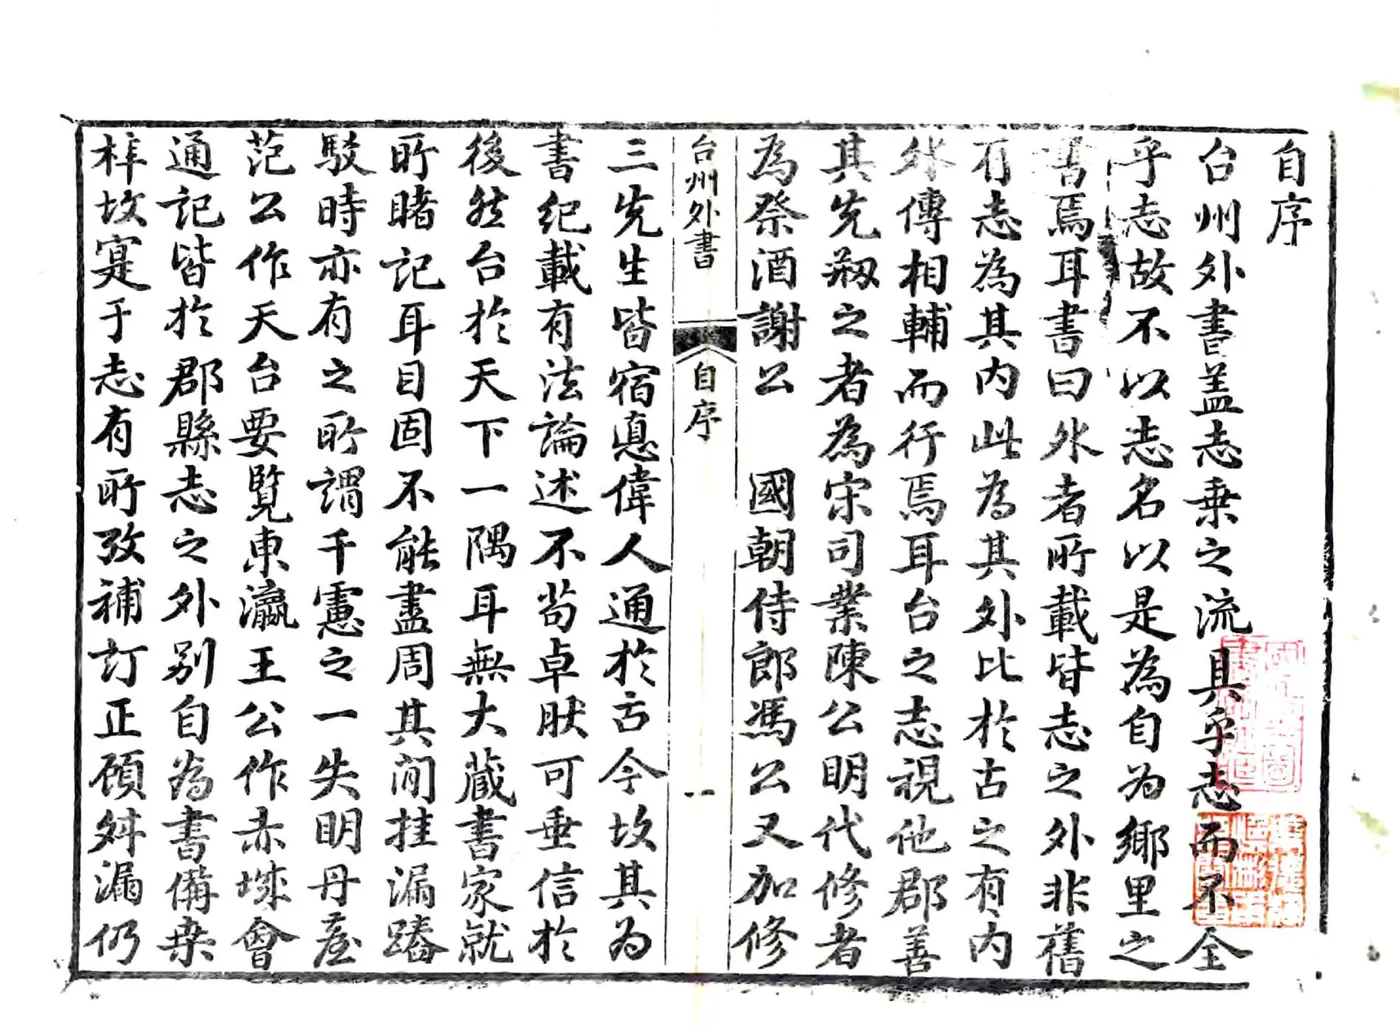 自序
台州外書蓋志乗之流具乎志而不全
乎志故不以志名以是為自為鄉里之
書焉耳書曰外者所載皆志之外非舊
有志為其内此為其外比於古之有内
外傳相輔而行焉耳台之志視他郡善
其先刱之者為宋司業陳公明代修者
為祭酒謝公 國朝侍郎馮公又加修
台州外書
自序
一
三先生皆宿悳偉人通於古今故其為
書紀載有法論述不茍卓肰可垂信於
後然台於天下一隅耳無大藏書家就
所睹記耳目固不能盡周其間挂漏踳
駮時亦有之所謂千慮之一失明丹崖
范公作天台要覽東瀛王公作赤城會
通記皆於郡縣志之外别自為書備桒
梓故寔于志有所攷補訂正頋舛漏仍